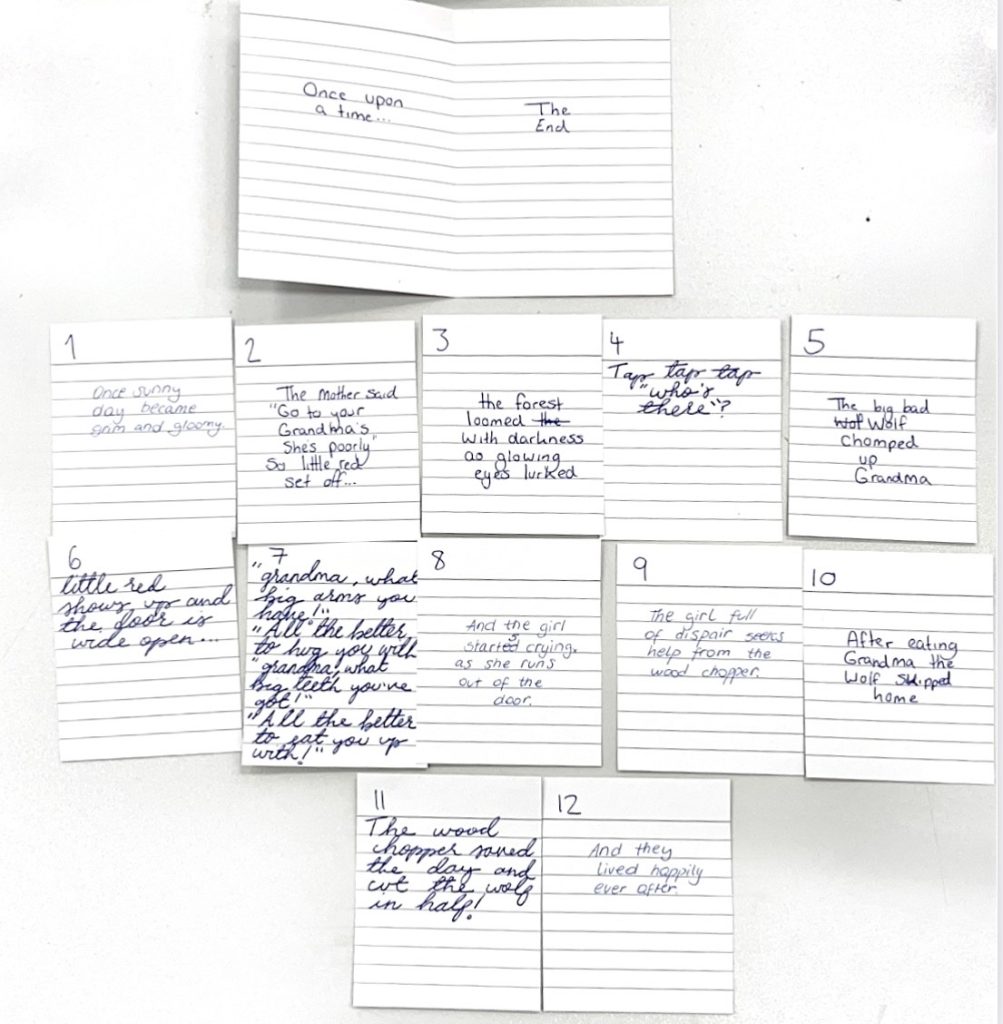 Once upon
a time...
The
End
1
Once sunny
day became
grim and gloomy.
2
The Mother said
"Go to your
Grandma's
She's poorly"
So little red
set off...
3
the forest
loomed the
with darkness
as glowing
eyes lurked
4
Tap tap tap
"who's
there"?
5
The big bad
Wof Wolf
Chomped
up
Grandma
6
little red
shows up and
the door is
wide open...
7
"grandma, what
big arms you
have!"
"All the better
to hug you with
"grandma, what
big teeth you've
got!"
"All the better
to eat you up
with!"
8
And the girl
started crying,
as she runs
out of the
door.
9
The girl full
of dispair seeks
help from the
wood chopper.
10
After eating
Grandma the
Wolf skipped
home
11
The wood
chopper saved
the day and
cut the wolf
in half!
12
And they
lived happily
ever after.